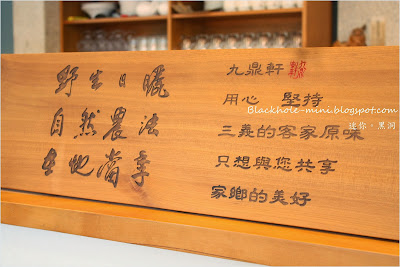 野生日曬
自然農法
在地當季
九鼎軒
用心 堅持
三義的客家原味
只想與您共享
家鄉的美好
Blackhole-mini.blogspot.com
迷你·黑洞